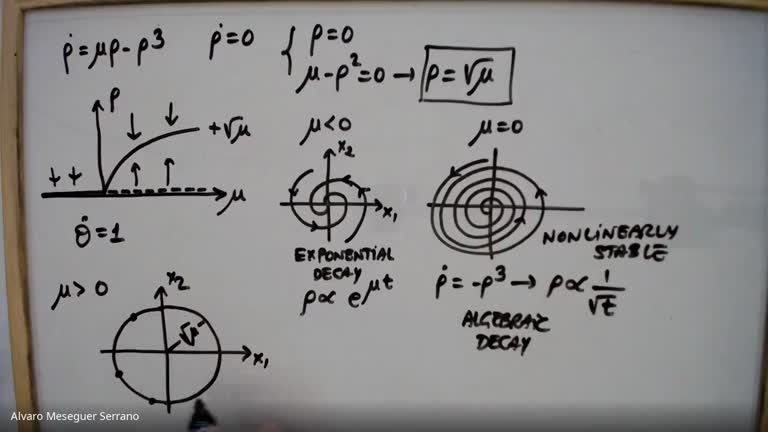 ρ̇ = μρ - ρ³    ρ̇ = 0    { ρ = 0
μ - ρ² = 0 → ρ = √μ
ρ
+√μ
μ
θ̇ = 1
μ < 0
x₂
x₁
EXPONENTIAL
DECAY
ρ ∝ e^μt
μ = 0
NONLINEARLY
STABLE
ρ̇ = -ρ³ → ρ ∝ 1/√t
ALGEBRAIC
DECAY
μ > 0
x₂
√μ
x₁
Alvaro Meseguer Serrano